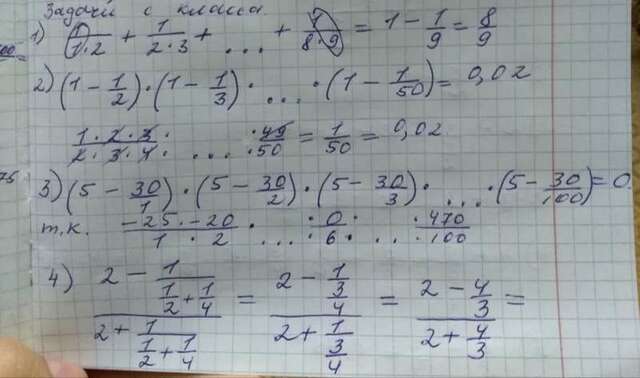 Задачи с класса
1) 1/1·2 + 1/2·3 + ... + 1/8·9 = 1 - 1/9 = 8/9
2) (1 - 1/2) · (1 - 1/3) · ... · (1 - 1/50) = 0,02
1·2·3· / 2·3·4· ... ·49/·50 = 1/50 = 0,02
75
3) (5 - 30/1) · (5 - 30/2) · (5 - 30/3) · ... · (5 - 30/100) = 0
т.к. -25·-20 / 1·2 · ... ·0·/·6· ... ·470/·100
4) (2 - 1/(1/2 + 1/4)) / (2 + 1/(1/2 + 1/4)) = (2 - 1/(3/4)) / (2 + 1/(3/4)) = (2 - 4/3) / (2 + 4/3) =